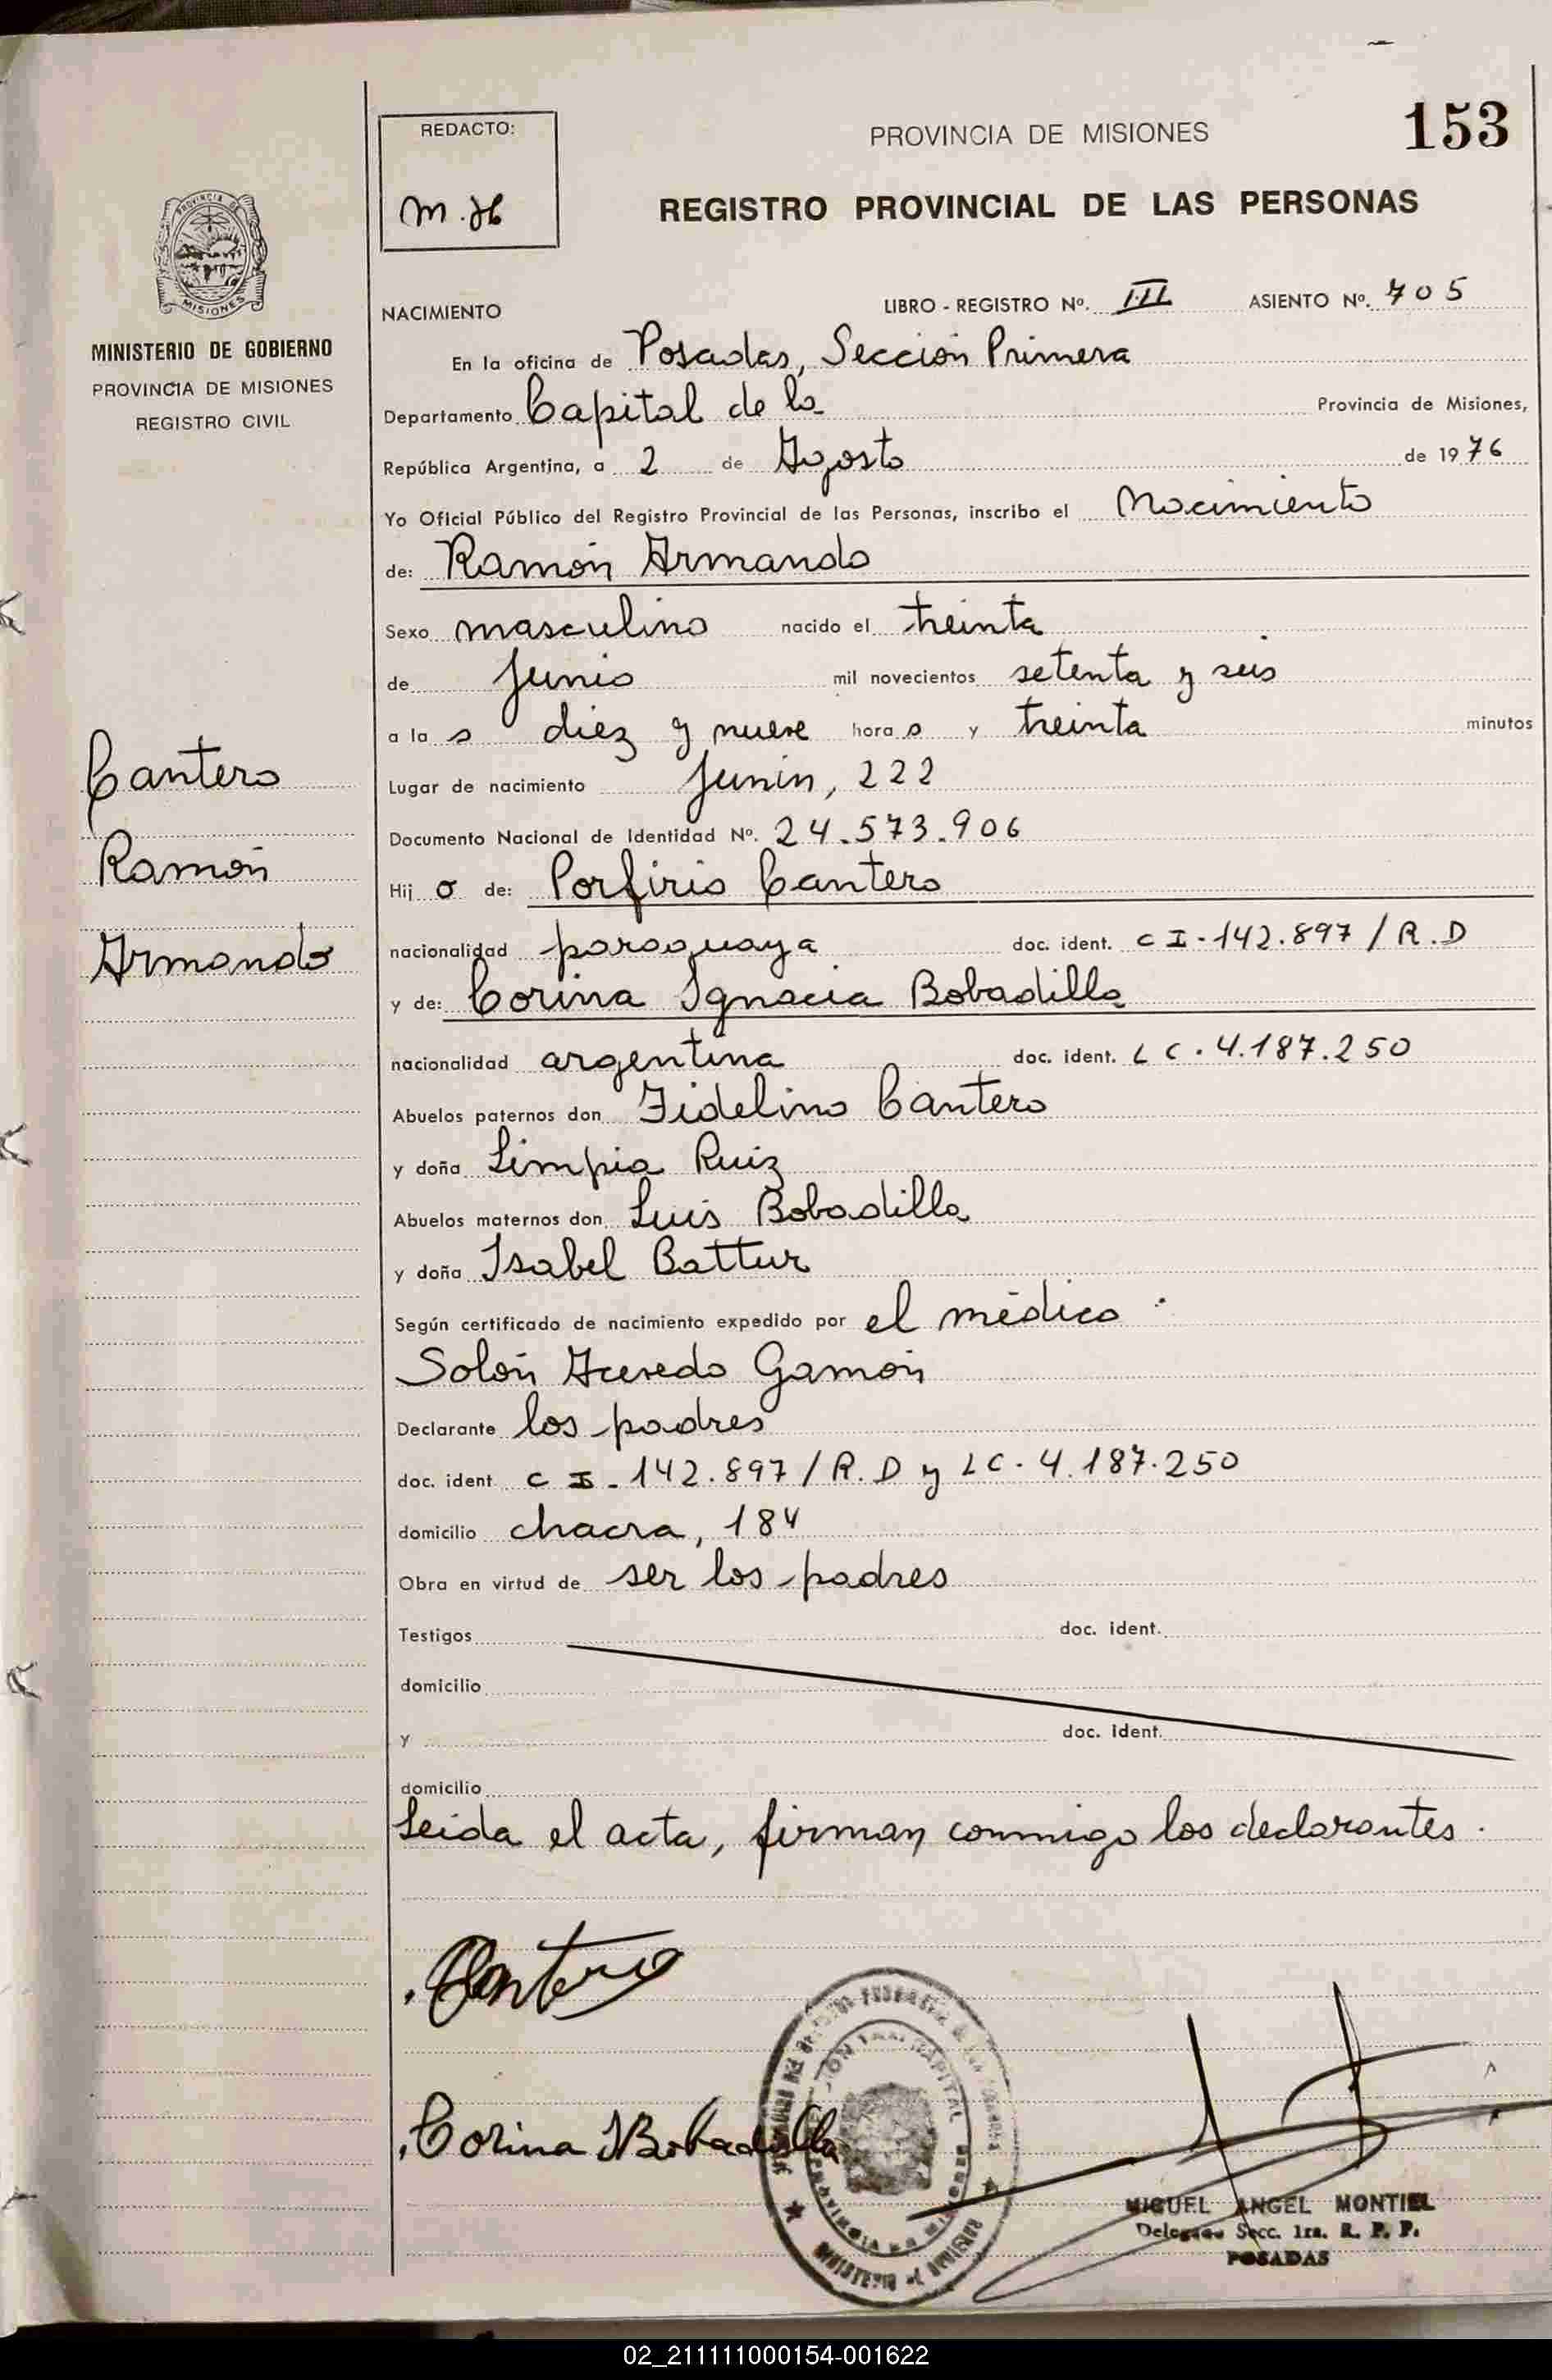 153
REDACTO:
PROVINCIA DE MISIONES
REGISTRO PROVINCIAL DE LAS PERSONAS
PROVINCIA DE
MISIONES
MINISTERIO DE GOBIERNO
PROVINCIA DE MISIONES
REGISTRO CIVIL
NACIMIENTO LIBRO - REGISTRO Nº. III ASIENTO Nº. 705
En la oficina de Posadas, Sección Primera
Departamento Capital de la Provincia de Misiones,
República Argentina, a 2 de Agosto de 1976
Yo Oficial Público del Registro Provincial de las Personas, inscribo el Nacimiento
de: Ramón Armando
Sexo masculino nacido el treinta
de Junio mil novecientos setenta y seis
a la s diez y nueve hora s y treinta minutos
Lugar de nacimiento Junín, 222
Documento Nacional de Identidad Nº. 24.573.906
Hij o de: Porfirio Cantero
nacionalidad paraguaya doc. ident. C I - 142.897 / R.D
y de: Corina Ignacia Bobadilla
nacionalidad argentina doc. ident. L C. 4.187.250
Abuelos paternos don Fidelino Cantero
y doña Limpia Ruiz
Abuelos maternos don Luis Bobadilla
y doña Isabel Battur
Según certificado de nacimiento expedido por el médico
Solón Acevedo Gamón
Declarante los padres
doc. ident C I - 142.897 / R.D y LC. 4.187.250
domicilio chacra, 184
Obra en virtud de ser los padres
Testigos doc. ident.
domicilio
y doc. ident.
domicilio
Leida el acta, firman conmigo los declarantes.
Cantero
Ramón
Armando
Cantero
Corina I Bobadilla
MIGUEL ANGEL MONTIEL
Delegado Secc. 1ra. R. P. P.
POSADAS
02_211111000154-001622